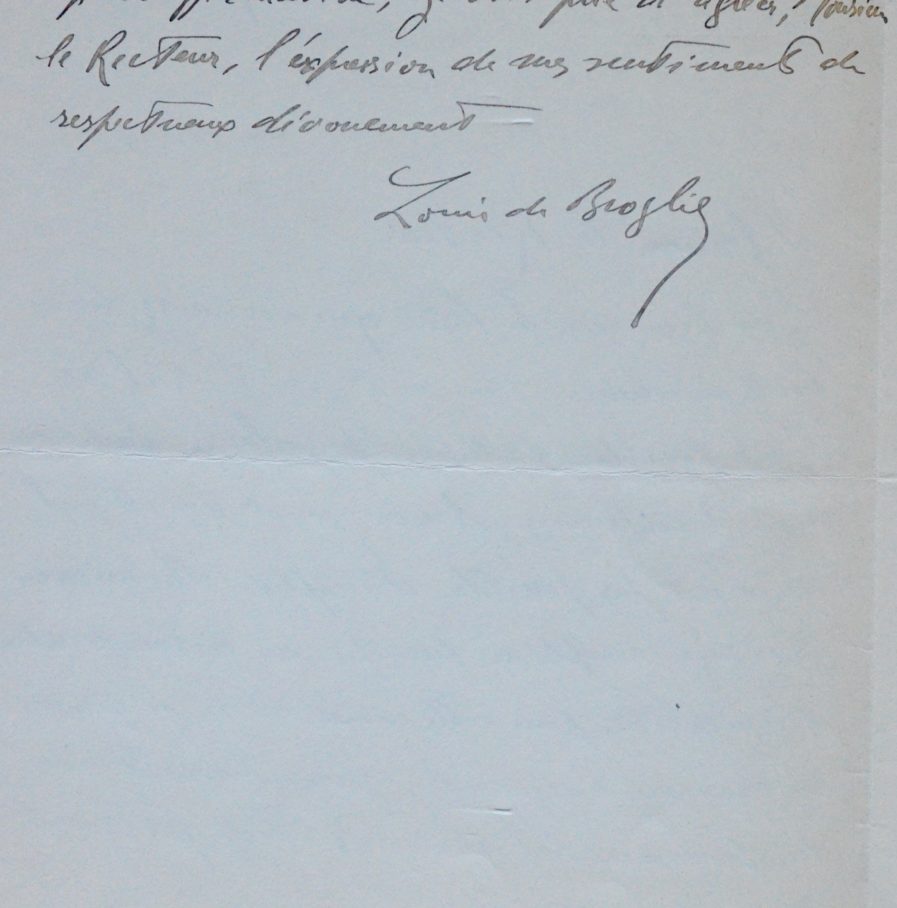 je vous prie d'agréer, Monsieur
le Recteur, l'expression de mes sentiments de
respectueux dévouement
Louis de Broglie